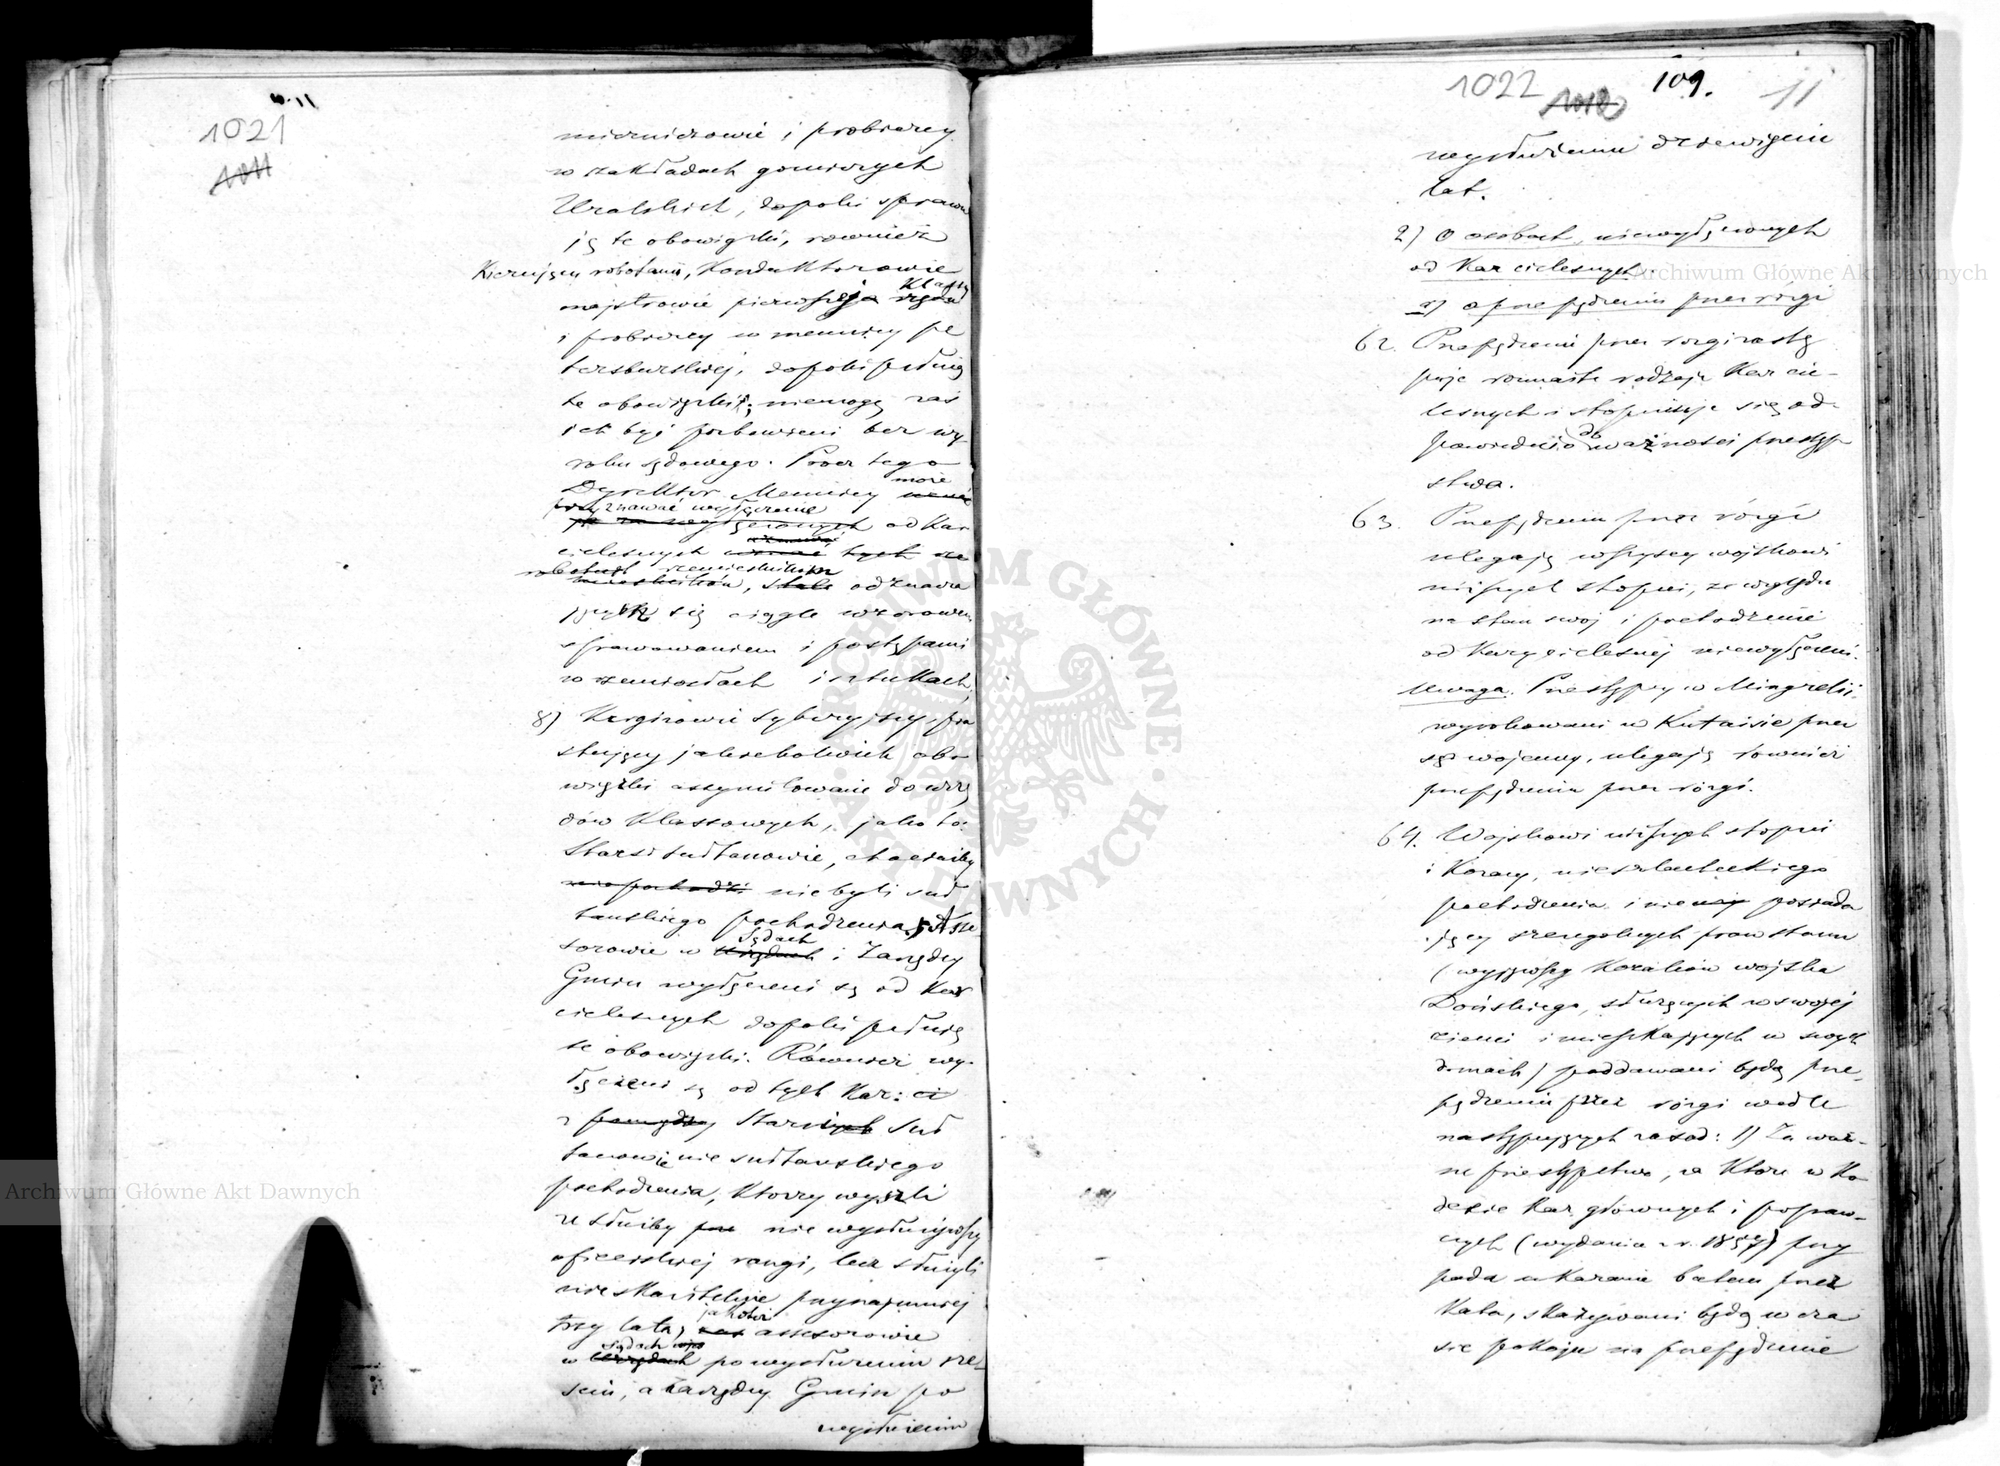 1021
1011
mierniczowie i probierzy
w zakładach gorniczych
Uralskich, dopoki sprawu
ją te obowiązki, rownież
Kierujący robotami, Konduktorowie
majstrowie pierwszej Klassy
i probierzy w mennicy pe
tersburskiej, dopoki pełnią
te obowiązki; niemogą zaś
ich być pozbawieni bez wy
roku sądowego. Procz tego
Dyrektor Mennicy może
przyznawać wyłączenie od Kar
cielesnych
robotnik rzemieślnikom, odznacza
jącym się ciągle wzorowem
sprawowaniem i postępami
w rzemiosłach i sztukach,
8) Kirgizowie Syberyjscy, pia
stujący jakiekolwiek obo
wiązki assymilowane do urzę
dów Klassowych, jako to:
Starsi sułtanowie, chociażby
nie pochodzi niebyli suł
tanskiego pochodzenia, Asse
sorowie w Sądach i Zarządcy
Gmin wyłączeni są od Kar
cielesnych dopoki pełnią
te obowiązki. Rówmież wy-
łączeni są od tych Kar: ci
z Starsi Suł
tanowie nie sułtanskiego
pochodzenia, Którzy wyszli
ze służby nie wysłużywszy
oficerskiej rangi, lecz służyli
nieskazitelnie przynajmniej
trzy lata, jakotéż assesorowie
w sądach po wysłużeniu sze-
ściu, a zarządcy Gmin po
wysłużeniu
1022 1012 109. 11
wysłużeniu dziewięciu
lat.
2) O osobach, niewyłączonych
od Kar cielesnych.
a) o przepędzeniu przez rózgi
62. Przepędzenie przez rózgi zastę
puje rozmaite rodzaje Kar cie-
lesnych i stopniuje się od-
powiednio do ważności przestęp-
stwa.
63. Przepędzeniu przez rózgi
ulegają wszyscy wojskowi
niższych stopni, ze względu
na stan swoj i pochodzenie
od Kary cielesnej niewyłączeni.
Uwaga. Przestępcy w Mingrelii,
wyrokowani w Kutaisie przez
sąd wojenny, ulegają rownież
przepędzeniu przez rózgi.
64. Wojskowi niższych stopni
i Kozacy, nieszlacheckiego
pochodzenia i nie posiada
jący szczegolnych praw stanu
(wyjąwszy Kozaków wojska
Dońskiego, służących w swojej
ziemi i mieszkających w swych
domach) poddawani będą prze-
pędzeniu przez rózgi wedle
następujących zasad: 1) Za waż-
ne przestępstwa, za Które w Ko
dexie Kar głównych i popraw-
czych (wydania z r. 1857) przy
pada ukaranie batem przez
Kata, skazywani będą w cza
sie pokoju na przepędzenie
Archiwum Główne Akt Dawnych
Archiwum Główne Akt Dawnych
ARCHIWUM GŁÓWNE · AKT DAWNYCH ·